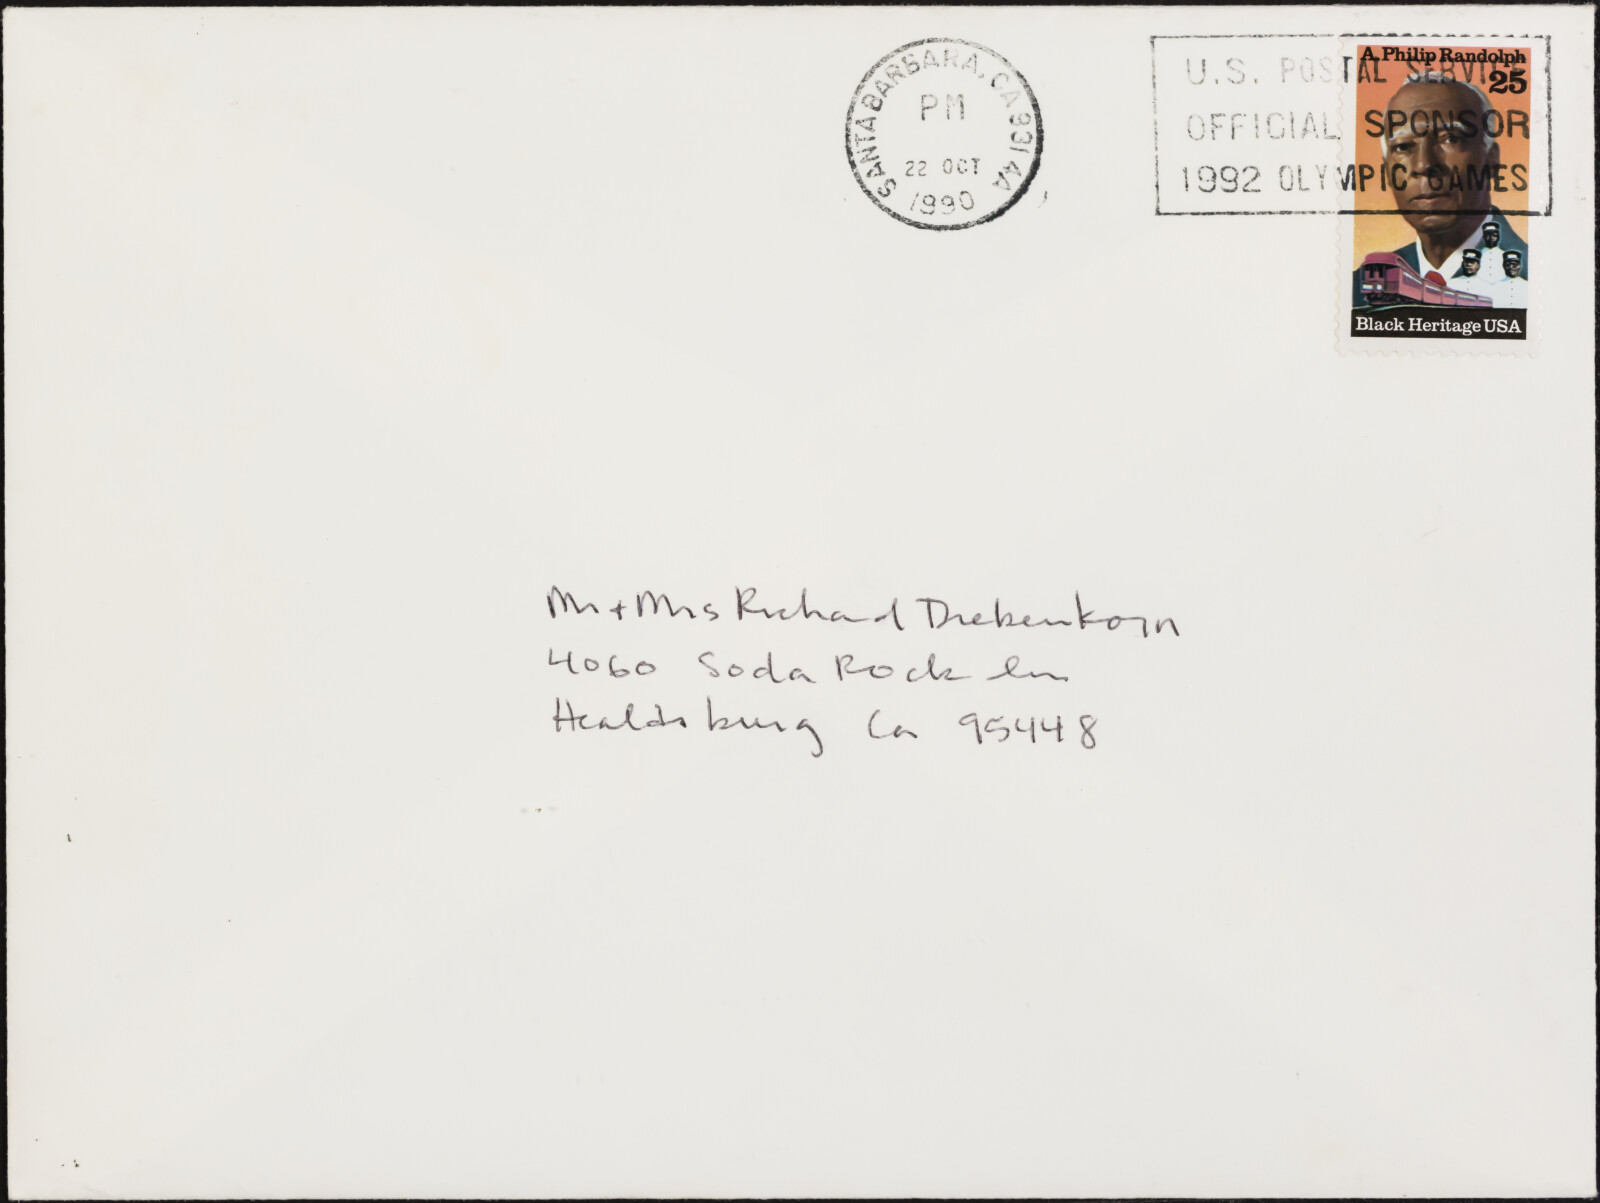 SANTA BARBARA, CA 931 4A
PM
22 OCT
1990
U.S. POSTAL SERVICE
OFFICIAL SPONSOR
1992 OLYMPIC GAMES
A. Philip Randolph
25
Black Heritage USA
Mr + Mrs Richard Diebenkorn
4060 Soda Rock Ln
Healdsburg Ca 95448